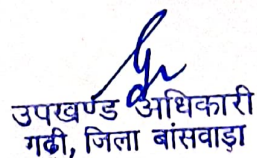 उपखण्ड अधिकारी
गढी, जिला बांसवाड़ा